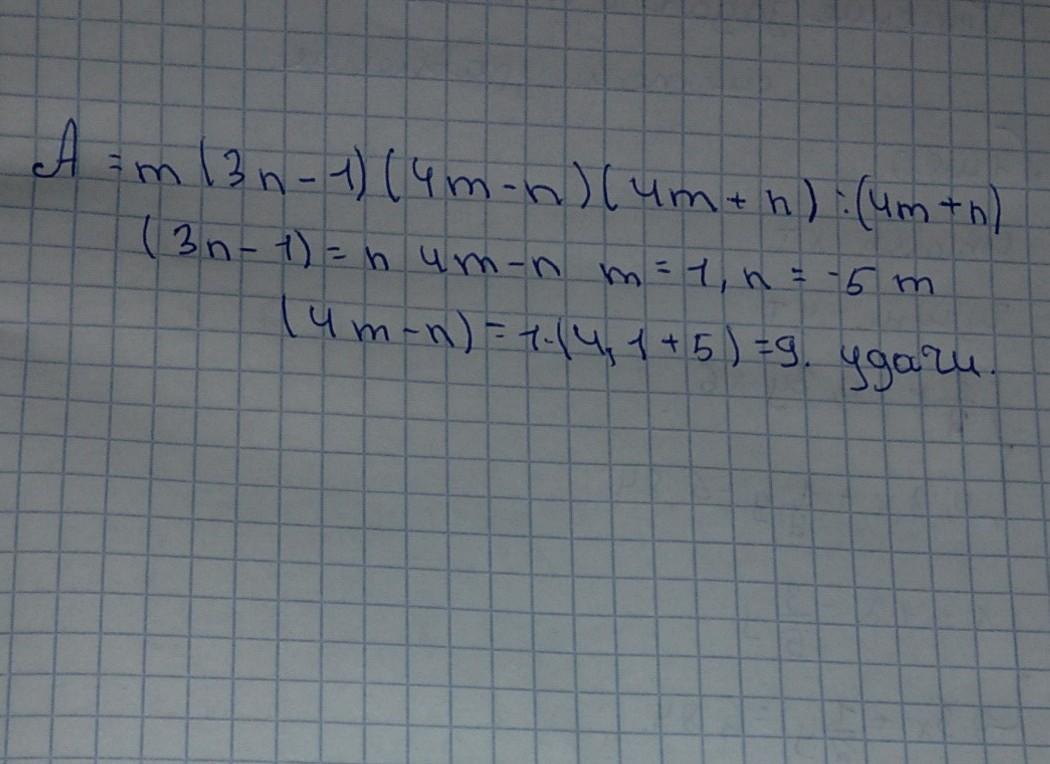 A = m (3n - 1) (4m - n) (4m + n) : (4m + n)
(3n - 1) = n 4m - n m = 1, n = -5 m
(4m - n) = 1·(4, 1 + 5) = 9. удачи.